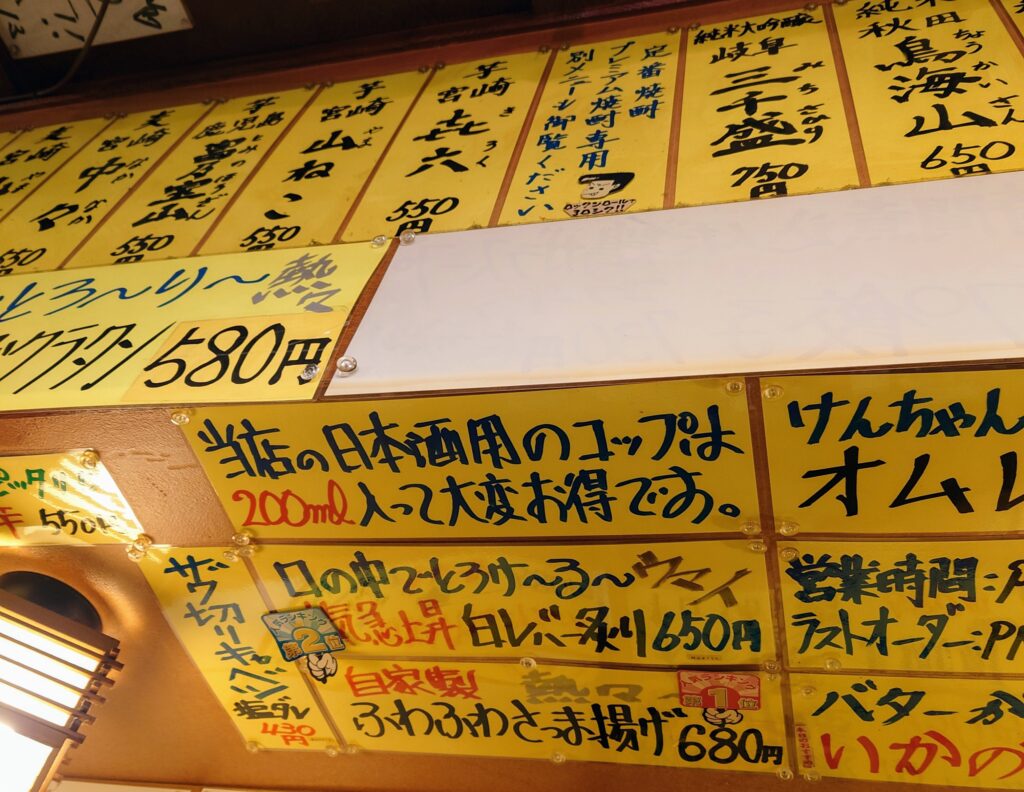 麦
宮崎
550
麦
宮崎
中々
なかなか
550
芋
鹿児島
550
芋
宮崎
山ねこ
やま
550
芋
宮崎
㐂六
きろく
550
円
定番焼酎
プレミアム焼酎専用
別メニューも御覧ください
ロックンロールで
ヨロシク!!
純米大吟醸
岐阜
三千盛
みちさかり
750
円
純米
秋田
鳥海山
ちょうかいさん
650
円
とろ〜り〜熱々
580円
当店の日本酒用のコップは
200ml入って大変お得です。
けんちゃん
オムレ
550円
ザク切りキャベツ
塩ダレ
430
円
口の中でとろけ〜る〜ウマイ
人気急上昇 白レバー炙り 650円
人気ランキング
第2位
営業時間:P
ラストオーダー:P
自家製 熱々
人気ランキング
第1位
ふわふわさつま揚げ 680円
バターが
本日のおすすめ
いかの